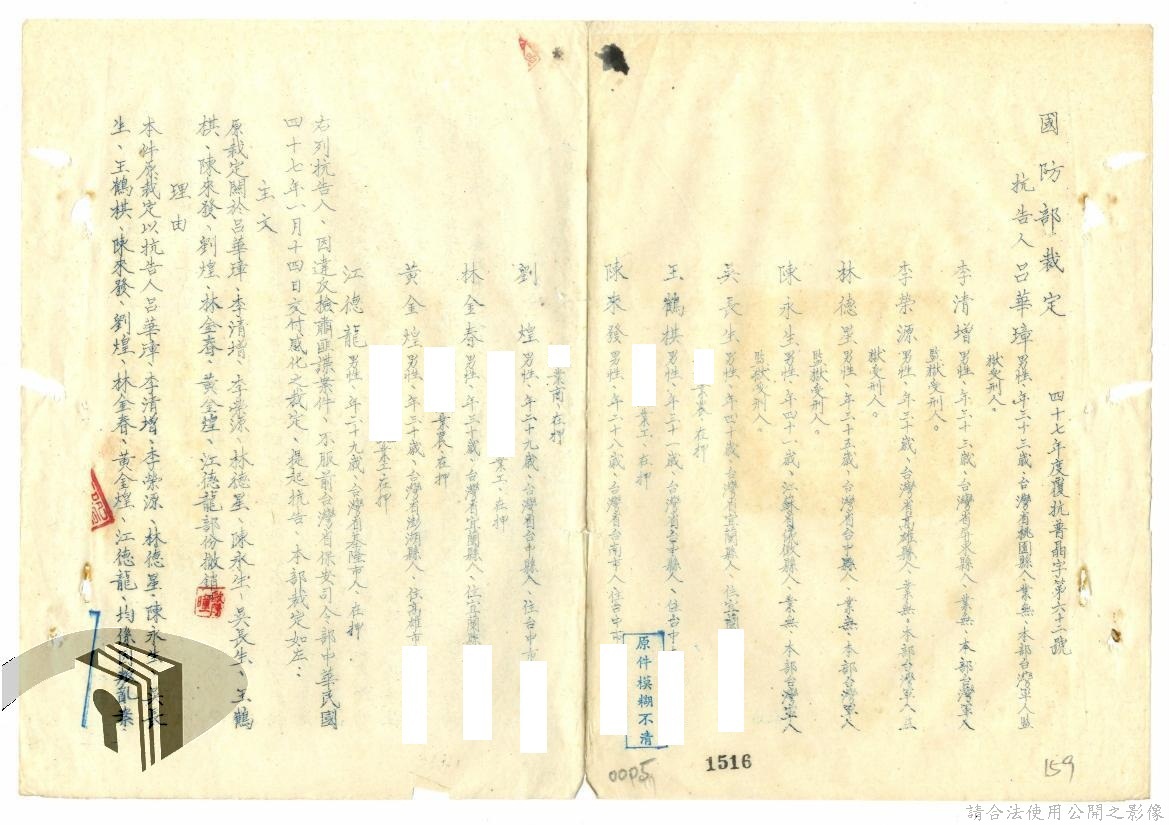 國防部裁定
四十七年度覆抗普晶字第六十二號
抗告人呂華璋 男性、年三十三歲、台灣省桃園縣人、業無、本部台灣軍人監
獄受刑人。
李清增 男性、年三十三歲、台灣省台東縣人、業無、本部台灣軍人
監獄受刑人。
李荣源 男性、年三十歲、台灣省高雄縣人、業無。本部台灣軍人监
獄受刑人。
林德星 男性、年三十五歲、台灣省台中縣人、業無、本部台灣軍人
監獄受刑人。
陳永生 男性、年四十一歲、江蘇省儀徵縣人、業無、本部台灣軍人
監獄受刑人。
吳長生 男性、年四十歲、台灣省宜蘭縣人、住宜蘭
業農、在押
王鶴棋 男性、年三十一歲、台灣省台中縣人、住台中
業工、在押
陳來發 男性、年二十八歲、台灣省台南市人住台中市
業商、在押
劉 煌 男性、年二十九歲、台灣省台中縣人、住台中市
業工、在押
林金春 男性、年三十歲、台灣省宜蘭縣人、住宜蘭縣
業農、在押
黃金煌 男性、年三十歲、台灣省澎湖縣人、住高雄市
業工、在押
江德龍 男性、年二十九歲、台灣省基隆市人、在押
右列抗告人、因違反檢肅匪諜案件、不服前台灣省保安司令部中華民國
四十七年一月十四日交付感化之裁定、提起抗告、本部裁定如左、
主文
原裁定關於呂華璋、李清增、李荣源、林德星、陳永生、吳長生、王鶴
棋、陳來發、劉煌、林金春、黃金煌、江德龍部份撤銷
理由
本件原裁定以抗告人呂華璋、李清增、李荣源、林德星、陳永生、吳長
生、王鶴棋、陳來發、劉煌、林金春、黃金煌、江德龍、均係因叛亂案
原件模糊不清
1516
0005
159
請合法使用公開之影像